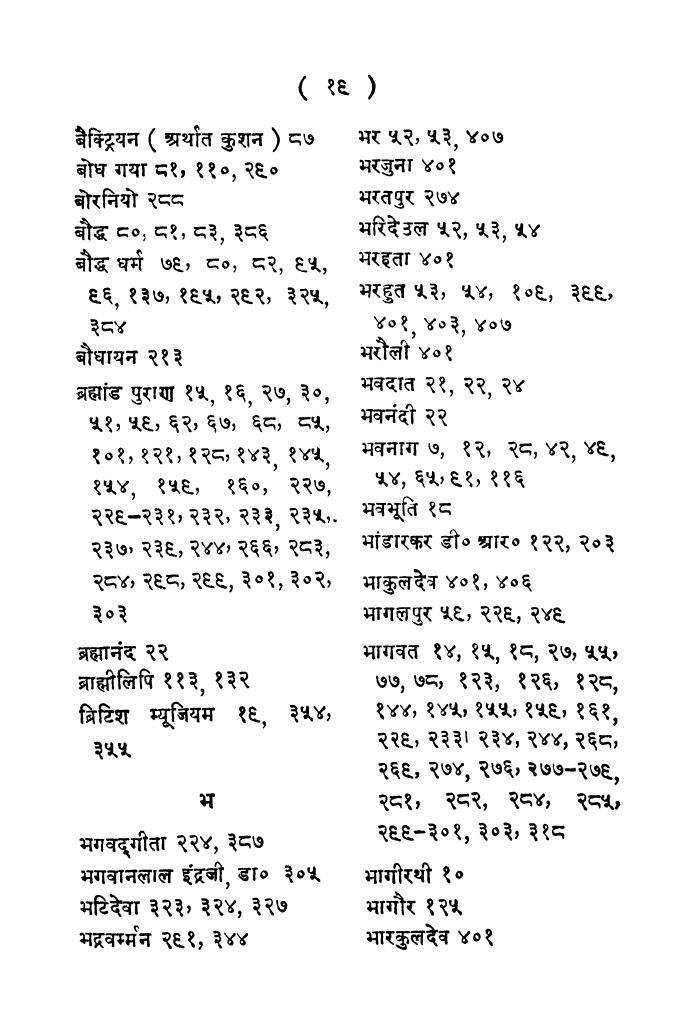 ( १९ )
बैक्ट्रियन ( अर्थात कुशन ) ८७
बोध गया ८१, ११०, २९०
बोरनियो २८८
बौद्ध ८०, ८१, ८३, ३८६
बौद्ध धर्म ७९, ८०, ८२, ९५,
९६, १३७, १९५, २९२, ३२५,
३८४
बौधायन २१३
ब्रह्मांड पुराण १५, १६, २७, ३०,
५१, ५९, ६२, ६७, ६८, ८५,
१०१, १२१, १२८, १४३, १४५,
१५४, १५९, १६०, २२७,
२२९–२३१, २३२, २३३, २३५,
२३७, २३९, २४४, २६६, २८३,
२८४, २९८, २९९, ३०१, ३०२,
३०३
ब्रह्मानंद २२
ब्राह्मीलिपि ११३, १३२
ब्रिटिश म्यूजियम १९, ३५४,
३५५
भ
भगवद्गीता २२४, ३८७
भगवानलाल इंद्रजी, डा० ३०५
भटिदेवा ३२३, ३२४, ३२७
भद्रवर्म्मन २९१, ३४४
भर ५२, ५३, ४०७
भरजुना ४०१
भरतपुर २७४
भरिदेउल ५२, ५३, ५४
भरहता ४०१
भरहुत ५३, ५४, १०९, ३९९,
४०१, ४०३, ४०७
भरौली ४०१
भवदात २१, २२, २४
भवनंदी २२
भवनाग ७, १२, २८, ४२, ४९,
५४, ६५, ९१, ११६
भवभूति १८
भांडारकर डी० आर० १२२, २०३
भाकुलदेव ४०१, ४०६
भागलपुर ५९, २२९, २४९
भागवत १४, १५, १८, २७, ५५,
७७, ७८, १२३, १२६, १२८,
१४४, १४५, १५५, १५९, १६१,
२२९, २३३। २३४, २४४, २६८,
२६९, २७४, २७६, २७७–२७९,
२८१, २८२, २८४, २८५,
२९९–३०१, ३०३, ३१८
भागीरथी १०
भागौर १२५
भारकुलदेव ४०१